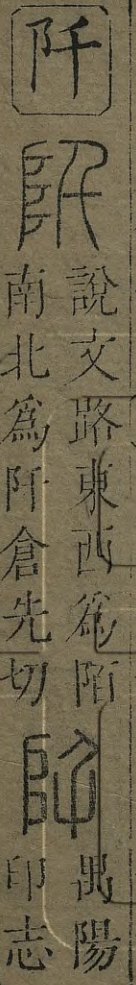 阡
阡
說文路東西為陌
南北爲阡倉先切
阡
陽
印志